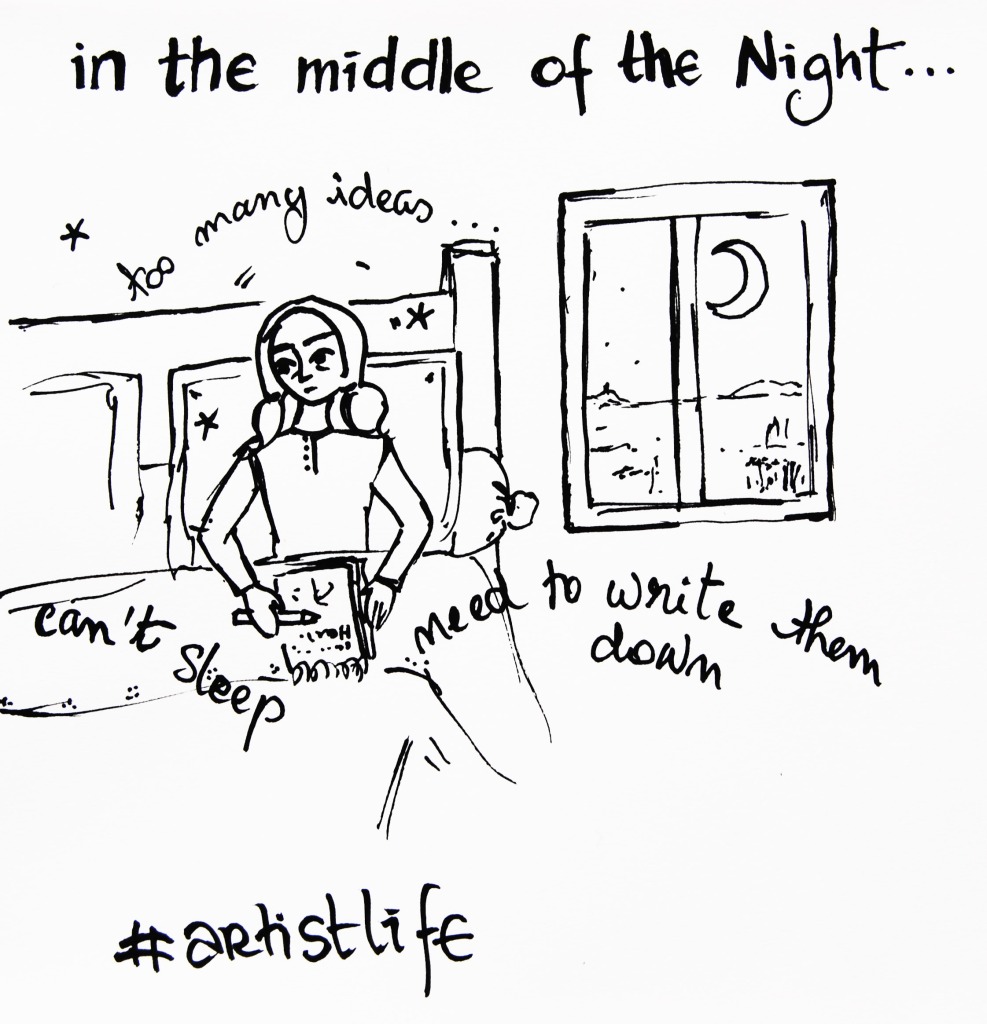 in the middle of the Night...
too many ideas...
can't
sleep
need to write them
down
#artistlife